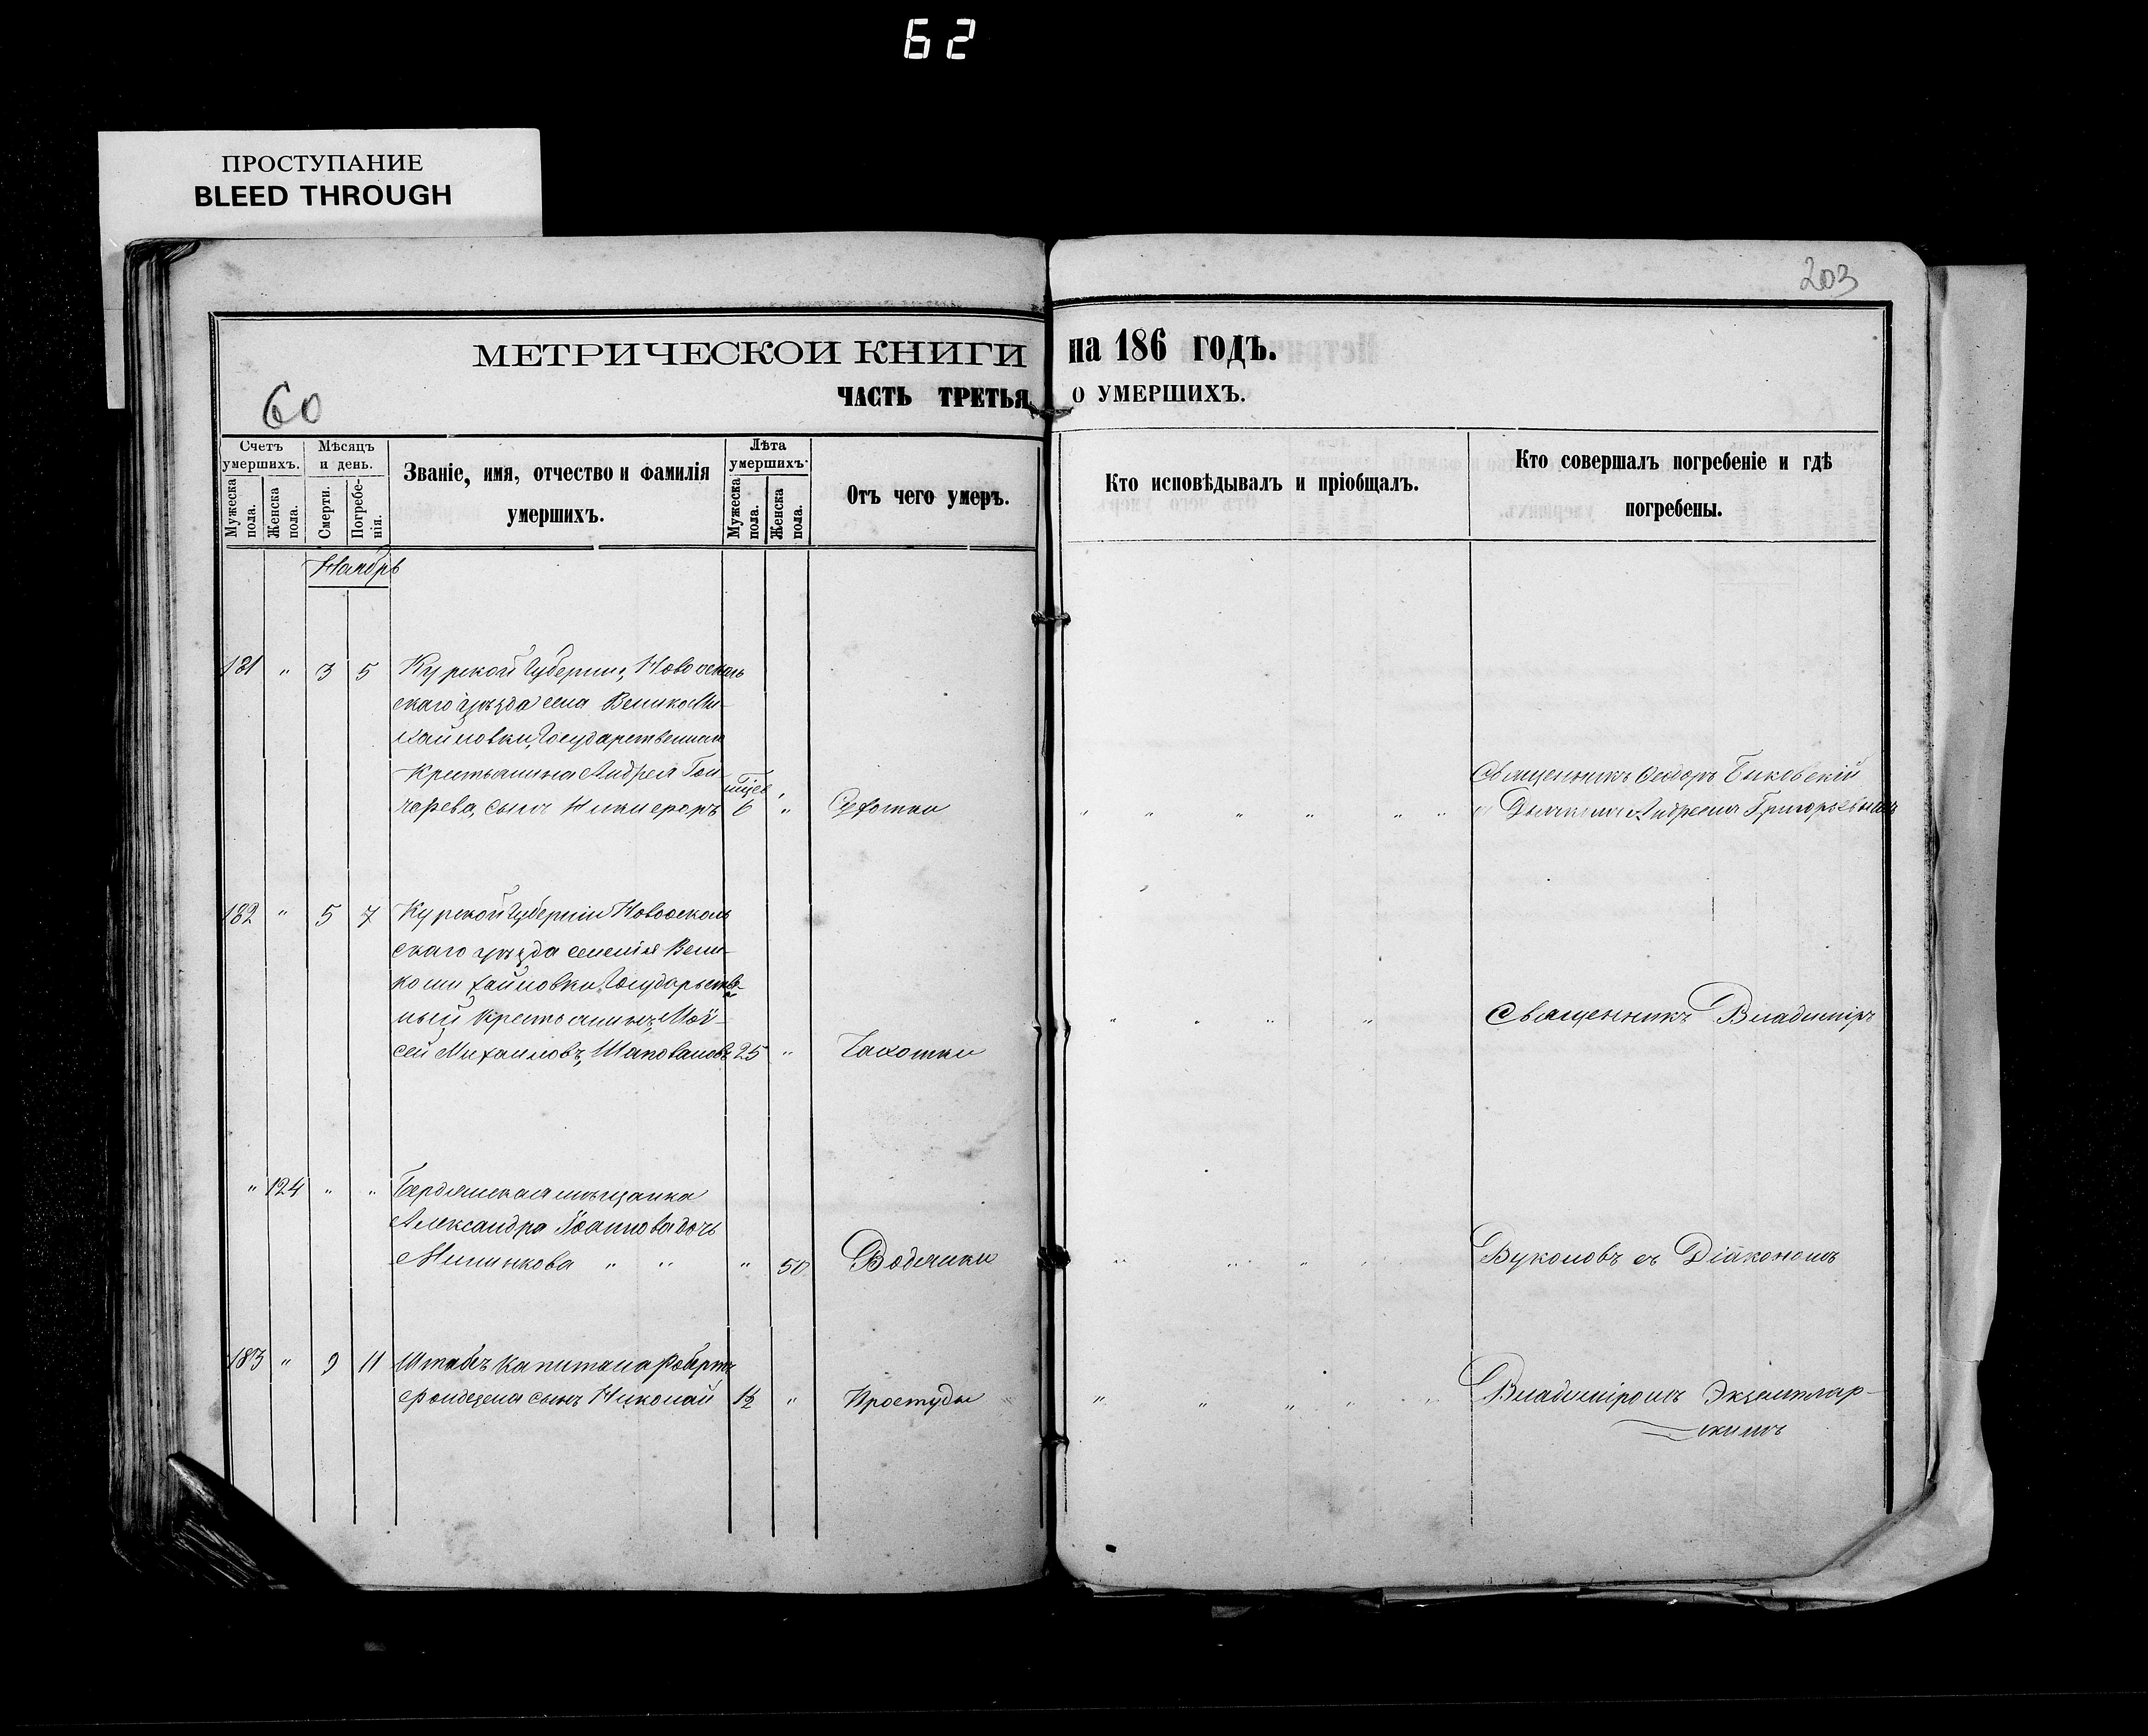 62
ПРОСТУПАНИЕ
BLEED THROUGH
203
МЕТРИЧЕСКОЙ КНИГИ на 186 годъ.
60
ЧАСТЬ ТРЕТЬЯ, О УМЕРШИХЪ.
Счетъ умершихъ.
Мужеска пола.
Женска пола.
Мѣсяцъ и день.
Смерти.
Погребенія.
Званіе, имя, отчество и фамилія умершихъ.
Лѣта умершихъ.
Мужеска пола.
Женска пола.
Отъ чего умеръ.
Кто исповѣдывалъ и пріобщалъ.
Кто совершалъ погребеніе и гдѣ погребены.
Ноябрь
181 " 3 5 Курской Губерніи, Новооскль
скаго уѣзда села Велико Ми-
хайловки, Государственнаго
Крестьянина Андрея Гон-
чарева, сынъ Никифоръ 6 " Сухотки
Священникъ Ѳедоръ
Андреемъ Григорьевымъ
182 " 5 7 Курской Губерніи Новоосколь
скаго уѣзда селенія Вели-
комихайловки, Государствен-
ный крестьянинъ, Мої-
сей Михаиловъ, Шаповаловъ 25 " Чахотки
Священникъ Владиміръ
" 124 " " Бердянская мѣщанка
Александра Іоаннова дочь
Милинкова " " " 50 Водянки
Вуколовъ съ Діакономъ
183 " 9 11 Штабъ Капитана Роберта
сынъ Николай 1½ " Простуды
Владиміромъ Экземпляр-
скимъ